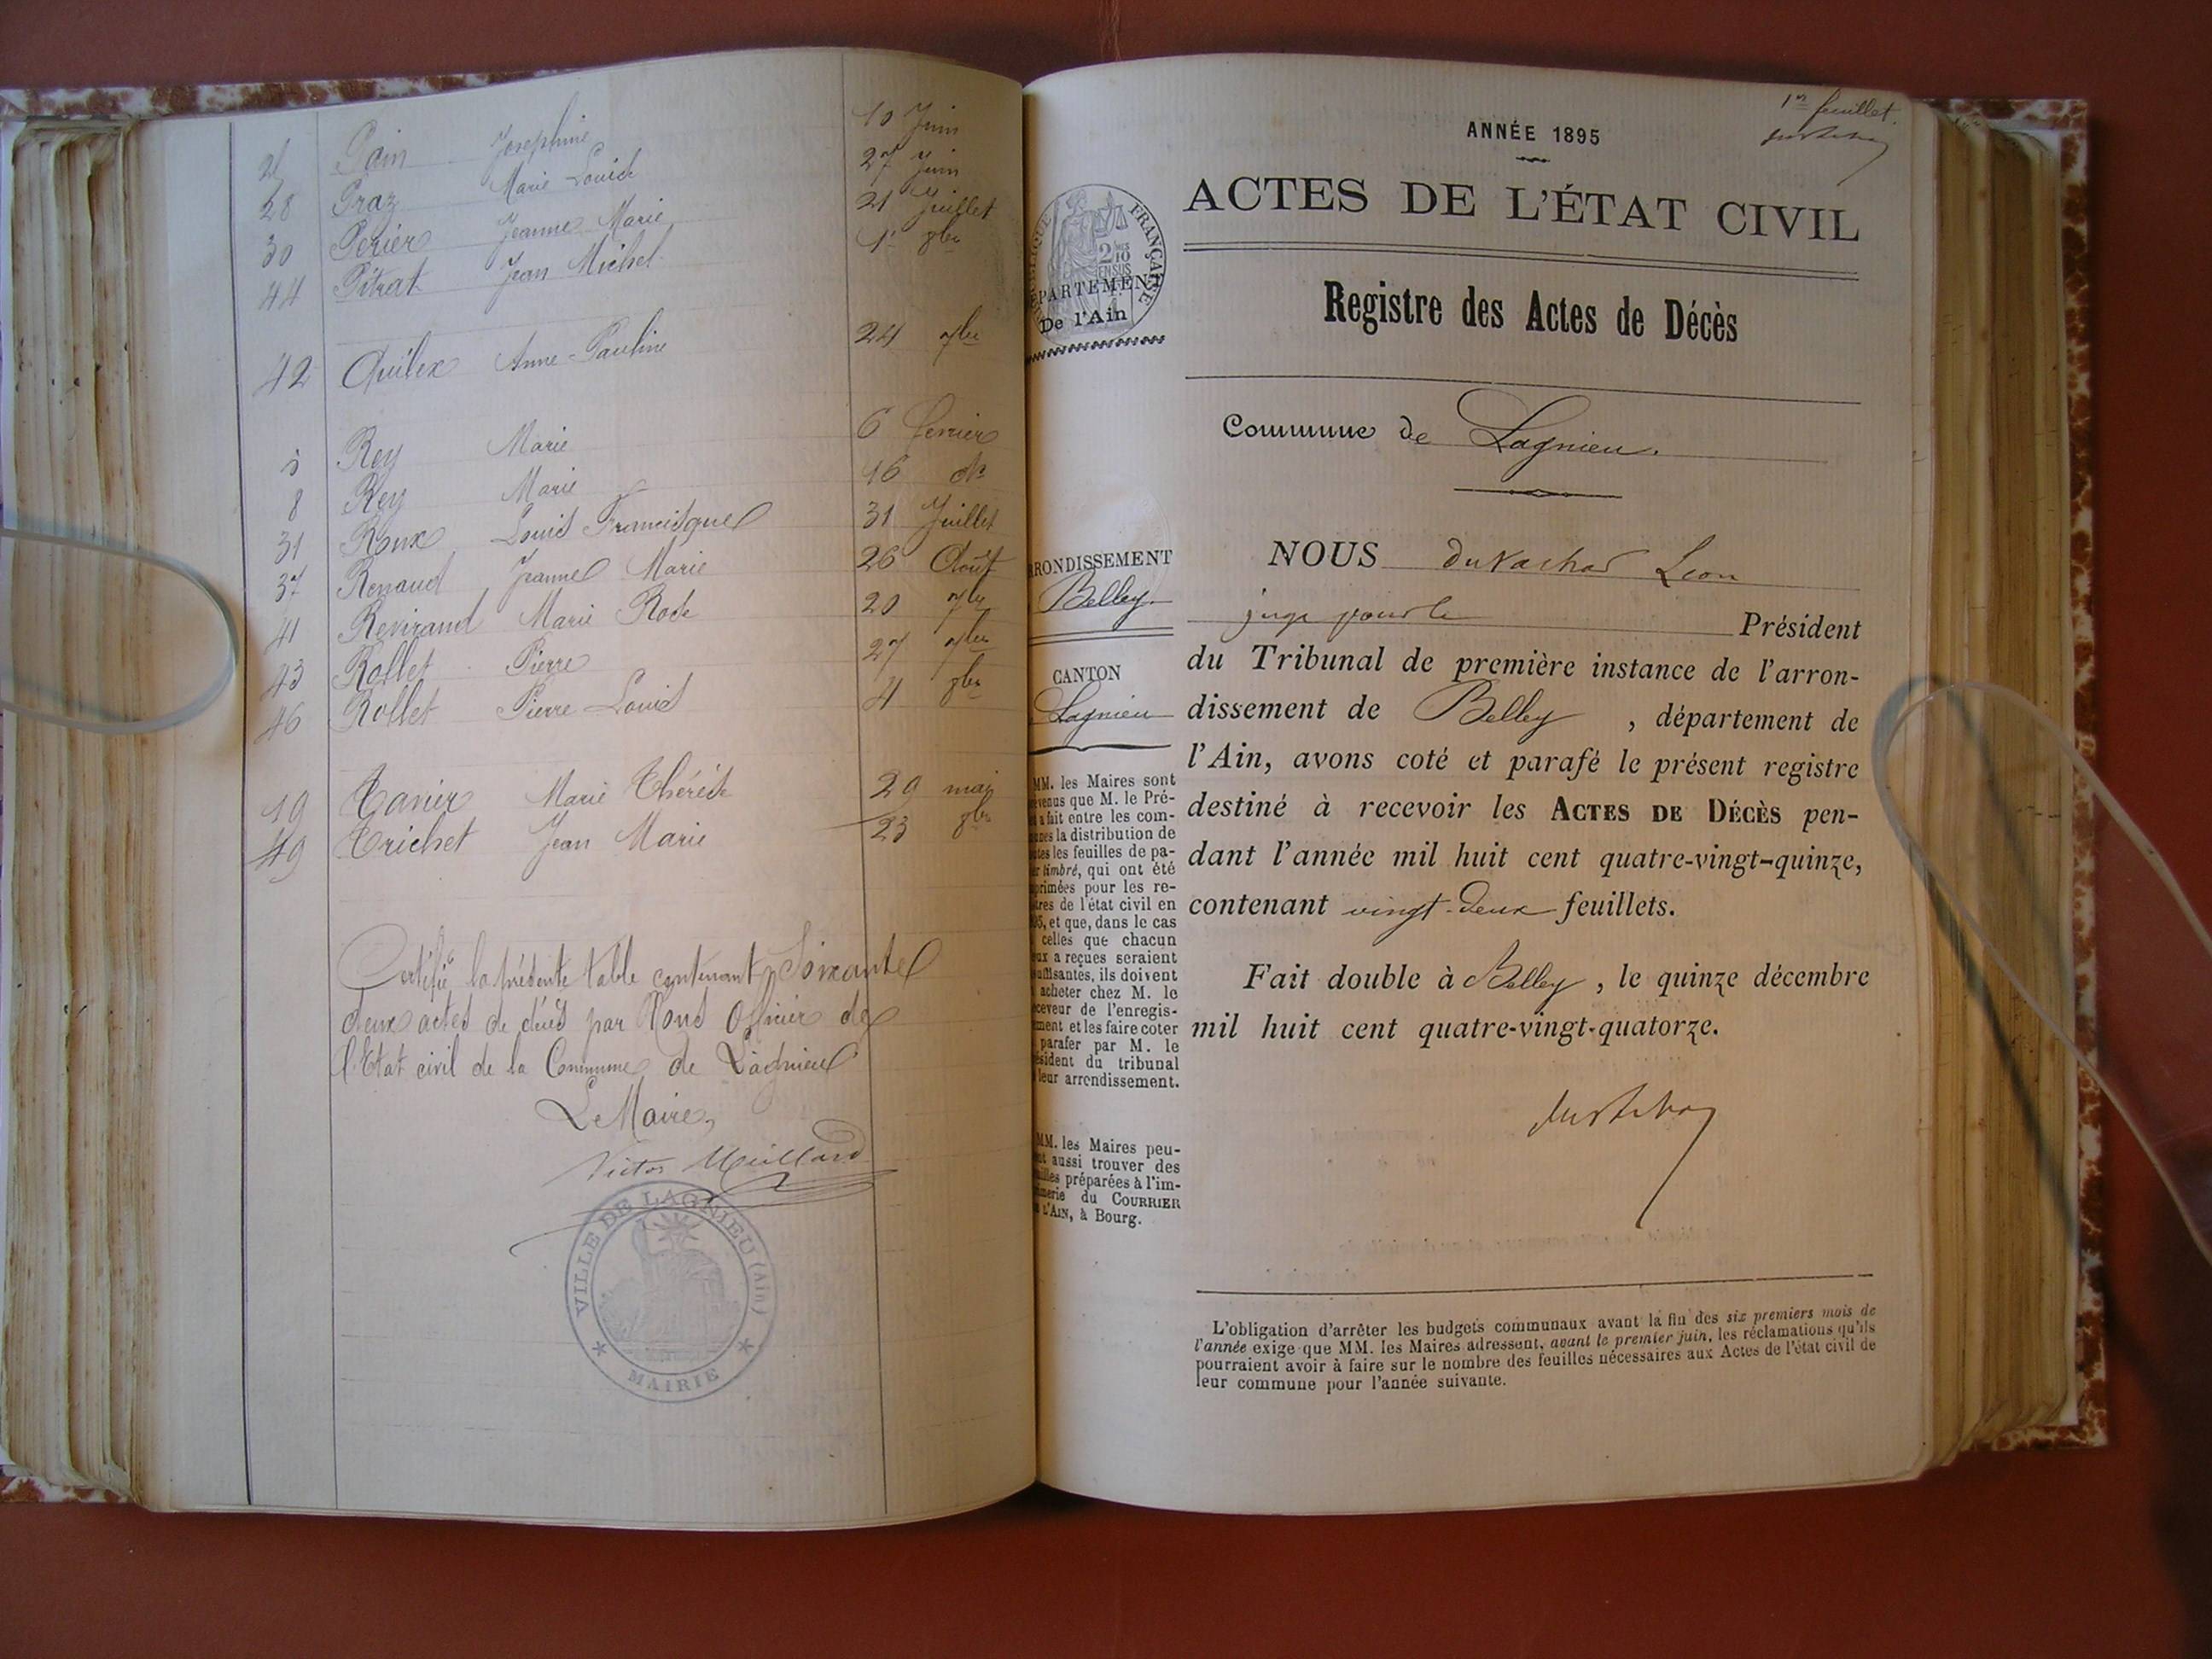 Pain Josephine 10 Juin
28 Praz Marie Louise 27 Juin
30 Perier Jeanne Marie 21 Juillet
44 Pitrat Jean Michel 1er 8bre
42 Quilex Anne-Pauline 24 7bre
Rey Marie 6 fevrier
8 Rey Marie 16 do
31 Roux Louis Francisque 31 Juillet
37 Renaud Jeanne Marie 26 Août
41 Revirand Marie Rose 20 7bre
43 Rollet Pierre 27 7bre
46 Rollet Pierre Louis 4 8bre
19 Tanier Marie Thérèse 29 mai
49 Trichet Jean Marie 23 8bre
Certifié la présente table contenant Soixante
deux actes de décès par Nous Officier de
l'Etat civil de la Commune de Lagnieu
Le Maire,
Victor
VILLE DE LAGNIEU (Ain)
MAIRIE
1er feuillet.
ANNÉE 1895
ACTES DE L'ÉTAT CIVIL
Registre des Actes de Décès
FRANÇAISE
2/10
EN SUS
PARTEMENT
De l'Ain
Commune de Lagnieu.
RONDISSEMENT
Belley
CANTON
Lagnieu
NOUS Léon
juge pour le Président
du Tribunal de première instance de l'arron-
dissement de Belley, département de
l'Ain, avons coté et parafé le présent registre
destiné à recevoir les ACTES DE DÉCÈS pen-
dant l'année mil huit cent quatre-vingt-quinze,
contenant vingt-deux feuillets.
Fait double à Belley, le quinze décembre
mil huit cent quatre-vingt-quatorze.
MM. les Maires sont
venus que M. le Pré-
a fait entre les com-
nes la distribution de
tes les feuilles de pa-
r timbré, qui ont été
primées pour les re-
tres de l'état civil en
95, et que, dans le cas
celles que chacun
ux a reçues seraient
uffisantes, ils doivent
acheter chez M. le
ceveur de l'enregis-
ment et les faire coter
parafer par M. le
ésident du tribunal
leur arrondissement.
MM. les Maires peu-
nt aussi trouver des
uilles préparées à l'im-
merie du COURRIER
L'AIN, à Bourg.
L'obligation d'arrêter les budgets communaux avant la fin des six premiers mois de
l'année exige que MM. les Maires adressent, avant le premier juin, les réclamations qu'ils
pourraient avoir à faire sur le nombre des feuilles nécessaires aux Actes de l'état civil de
leur commune pour l'année suivante.